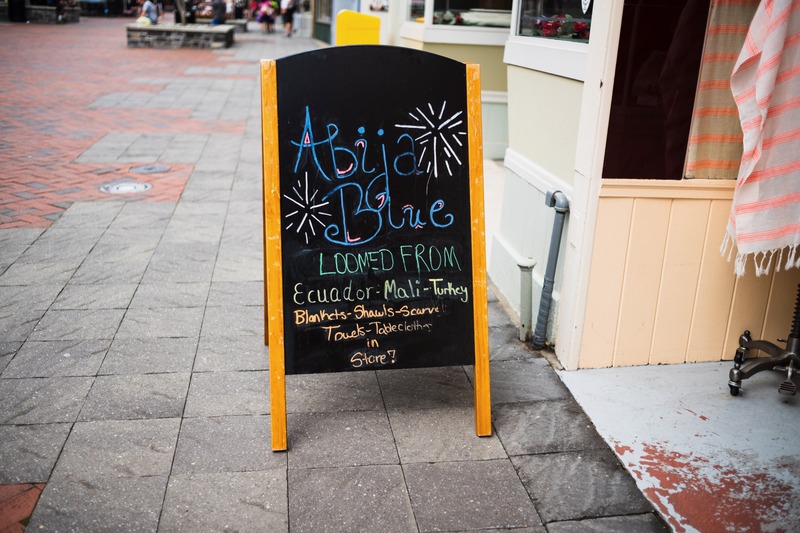 Abija
Blue
LOOMED FROM
Ecuador-Mali-Turkey
Blankets-Shawls-Scarve
Towels-Tablecloths
in
Store!